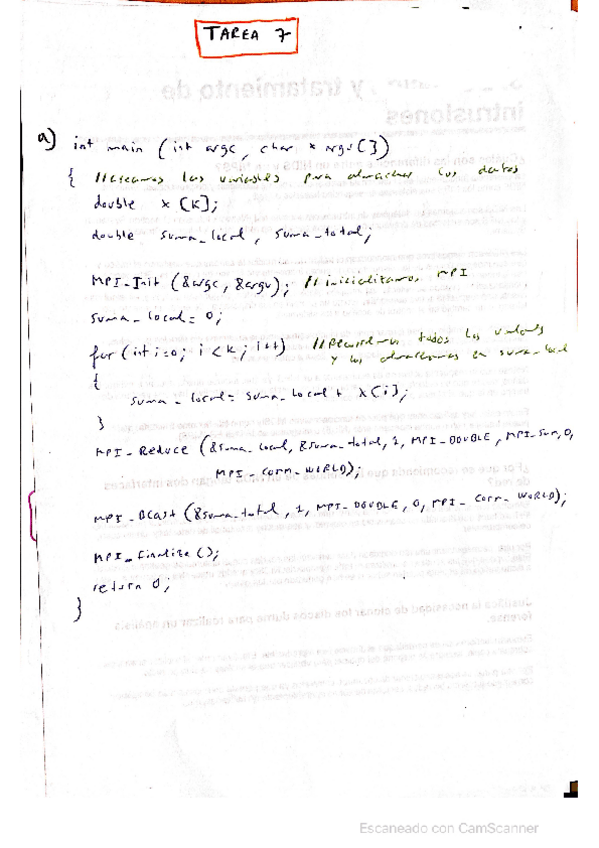 TAREA 7
a) int main (int argc, char * argv[])
{ //creamos las variables para almacenar los datos
double x [K];
double suma_local, suma_total;
MPI_Init (&argc, &argv); // inicializamos MPI
suma_local = 0;
for (int i=0; i < k; i++) // todos los valores
y los almacenamos en suma_local
{
suma_local = suma_local + x[i];
}
MPI_Reduce (&suma_local, &suma_total, 1, MPI_DOUBLE, MPI_SUM, 0,
MPI_COMM_WORLD);
MPI_Bcast (&suma_total, 1, MPI_DOUBLE, 0, MPI_COMM_WORLD);
MPI_Finalize ();
return 0;
}
Escaneado con CamScanner